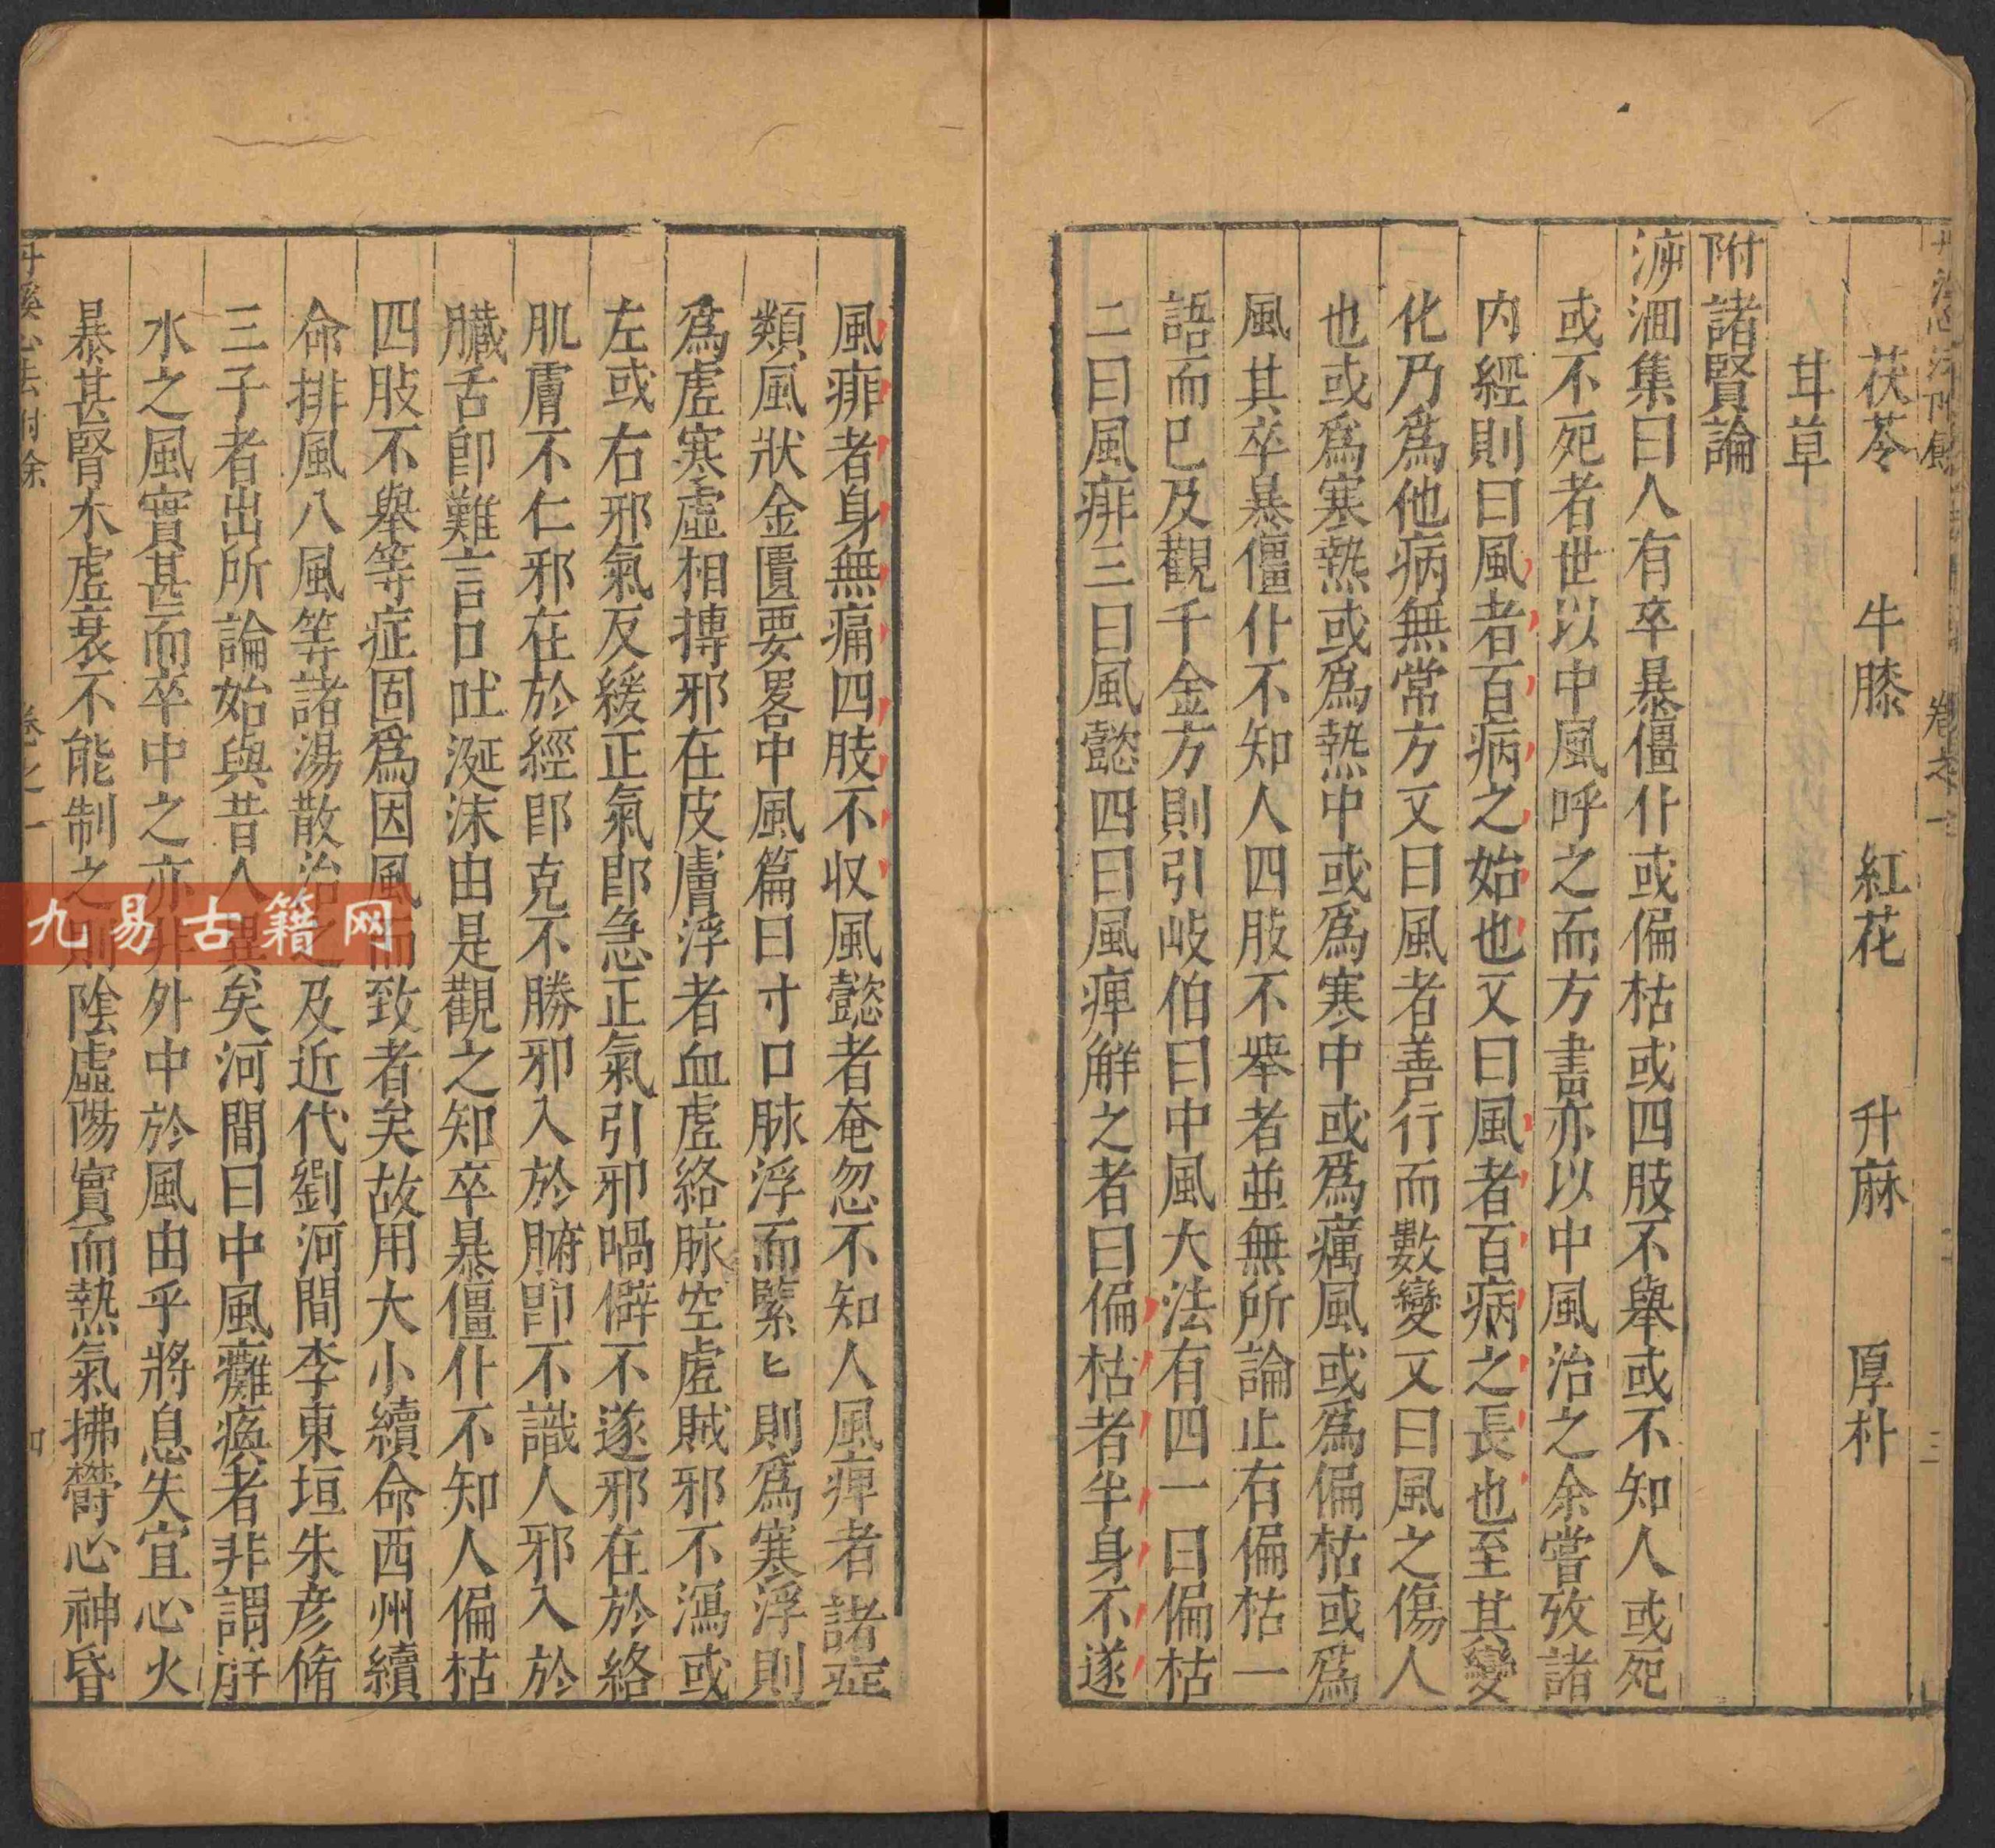 茯苓 牛膝 紅花 升麻 厚朴
甘草
附諸賢論
泝洄集曰人有卒暴僵仆或偏枯或四肢不舉或不知人或死
或不死者世以中風呼之而方書亦以中風治之余嘗攷諸
内經則曰風者百病之始也又曰風者百病之長也至其變
化乃爲他病無常方又曰風者善行而數變又曰風之傷人
也或爲寒熱或爲熱中或爲寒中或爲癘風或爲偏枯或爲
風其卒暴僵仆不知人四肢不舉者並無所論止有偏枯一
語而已及觀千金方則引岐伯曰中風大法有四一曰偏枯
二曰風痱三曰風懿四曰風痺解之者曰偏枯者半身不遂
風痱者身無痛四肢不收風懿者奄忽不知人風痺者諸症
類風狀金匱要畧中風篇曰寸口脉浮而緊匕則爲寒浮則
爲虗寒虛相摶邪在皮膚浮者血虗絡脉空虗賊邪不瀉或
左或右邪氣反緩正氣即急正氣引邪喎僻不遂邪在於絡
肌膚不仁邪在於經即㐲不勝邪入於腑即不識人邪入於
臟舌即難言口吐涎沫由是觀之知卒暴僵仆不知人偏枯
四肢不舉等症固爲因風而致者矣故用大小續命西州續
命排風八風等諸湯散治之及近代劉河間李東垣朱彥脩
三子者出所論始與昔人異矣河間曰中風癱瘓者非謂肝
木之風實甚而卒中之亦非外中於風由乎將息失宜心火
暴甚腎水虗衰不能制之則陰虛陽實而熱氣拂鬱心神昏
丹溪心法附餘
卷之一
九易古籍网